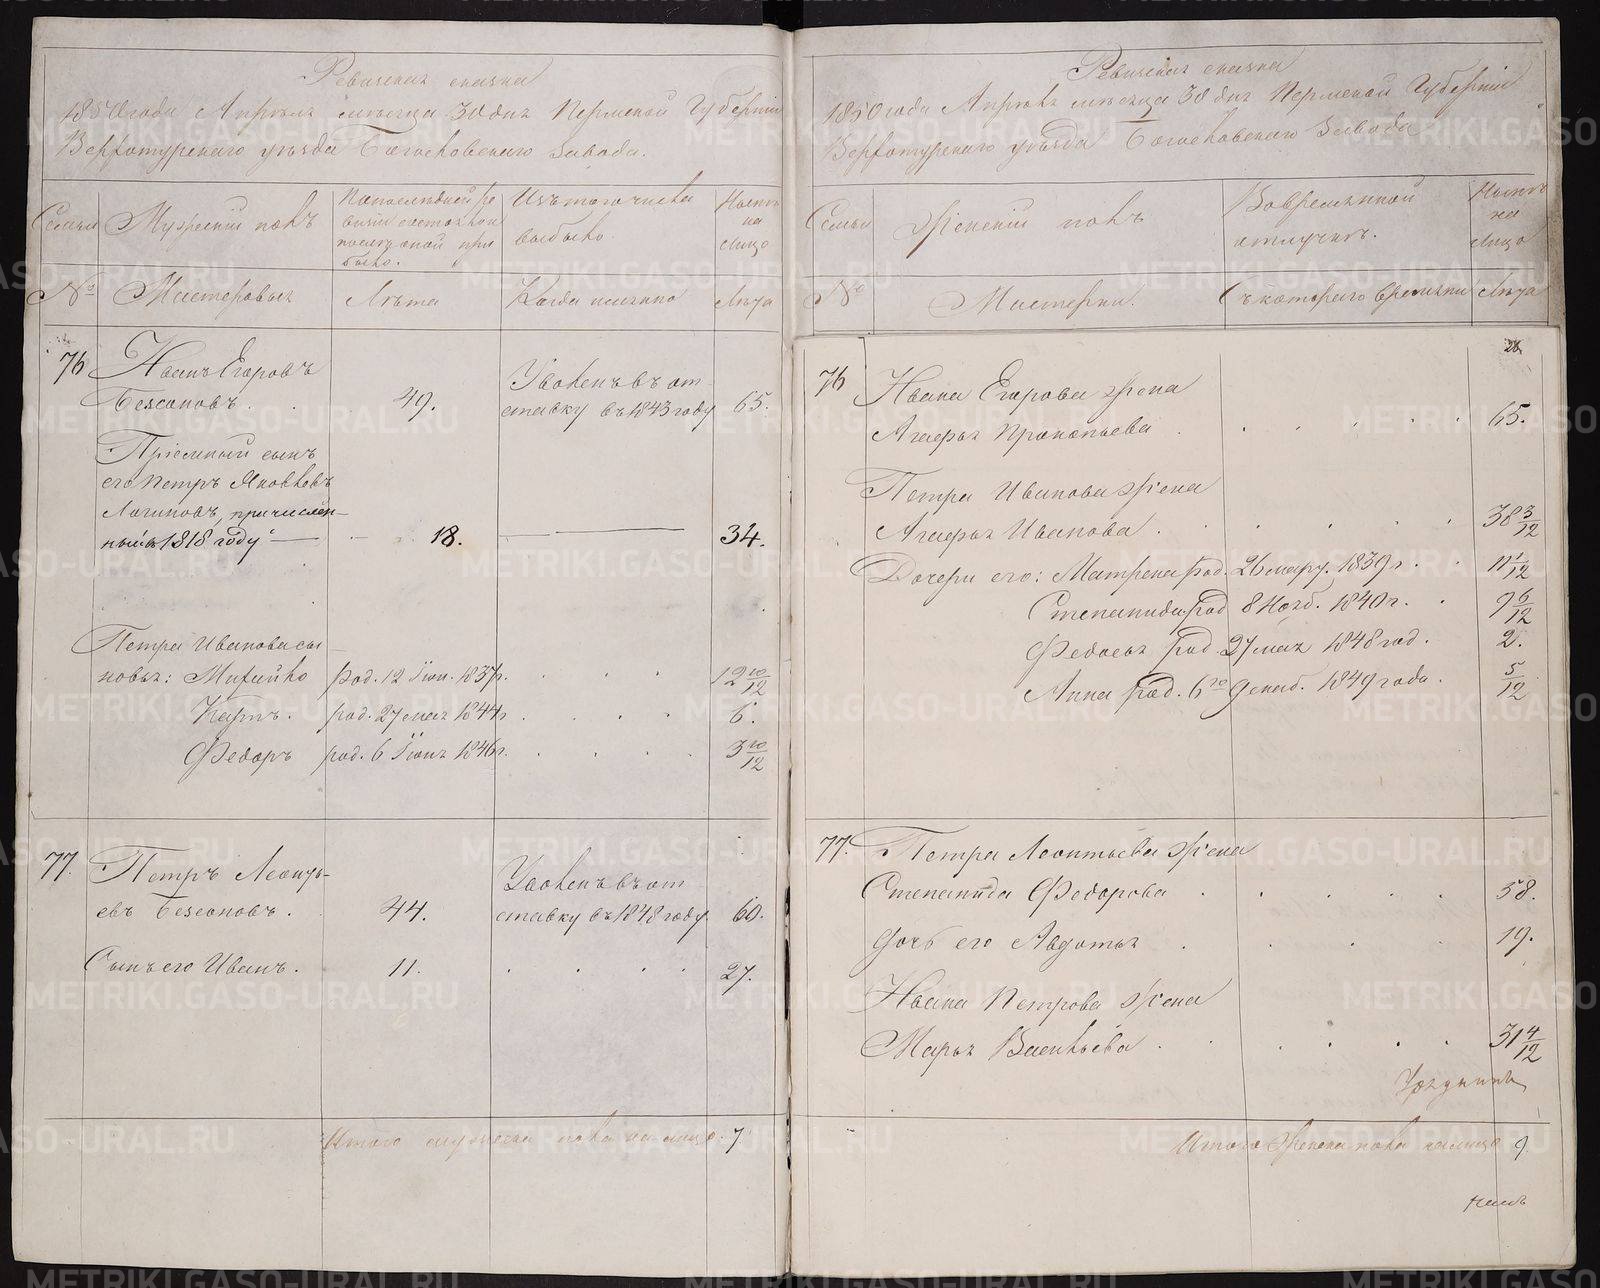 Ревизская сказка
1850 года Апреля месяца 30 дня Пермской Губернии
Верхотурскаго уезда Богословскаго завода.
Семьи
Мужеский полъ
По последней ре
визии состояло и
после оной при
было.
Изъ того числа
выбыло.
Ныне
на
лицо
№
Мастеровыя
Лета
Когда именно
Лета
76
Иванъ Егоровъ
Безсоновъ.
49.
Уволенъ въ от
ставку въ 1843 году
65.
Приемный сынъ
его Петръ Яковлевъ
Логиновъ, причислен-
ный въ 1818 году
18.
34.
Петра Иванова сы
новья: Михайло род. 12 Iюн. 1837г. 12 10/12
Карпъ. род. 27 мая 1844г 6.
Федоръ род. 6 Iюня 1846г. 3 10/12
77.
Петръ Леонть-
евъ Безсоновъ.
44.
Уволенъ въ от
ставку въ 1848 году
60.
Сынъ его Иванъ. 11. 27.
Итого мужеска пола на лицо. 7.
Ревизская сказка
1850 года Апреля месяца 30 дня Пермской Губернии
Верхотурскаго уезда Богословскаго завода
Семьи
Женский полъ
Во временной
отлучке.
Ныне
на
лицо
№
Мастерки.
Съ котораго времени
Лета
28
76
Ивана Егорова жена
Агафья Прокопьева 65.
Петра Иванова жена
Агафья Иванова 38 3/12
Дочери его: Матрена род. 26 мар. 1839 г. 11 1/12
Степанида род 8 Нояб. 1840 г. 9 6/12
Федосья род 27 мая 1848 год. 2.
Анна род. 6го Декаб. 1849 года. 5/12
77.
Петра Леонтьева жена
Степанида Федорова 58.
Дочь его Авдотья 19.
Ивана Петрова жена
Марья Васильева 31 4/12
Итого женска пола на лицо 9